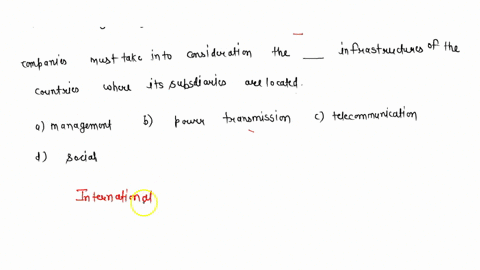 companies must take into consideration the ___ infrastructures of the
countries where its subsdiaries are located.
a) management b) power transmission c) telecommunication
d) social
International